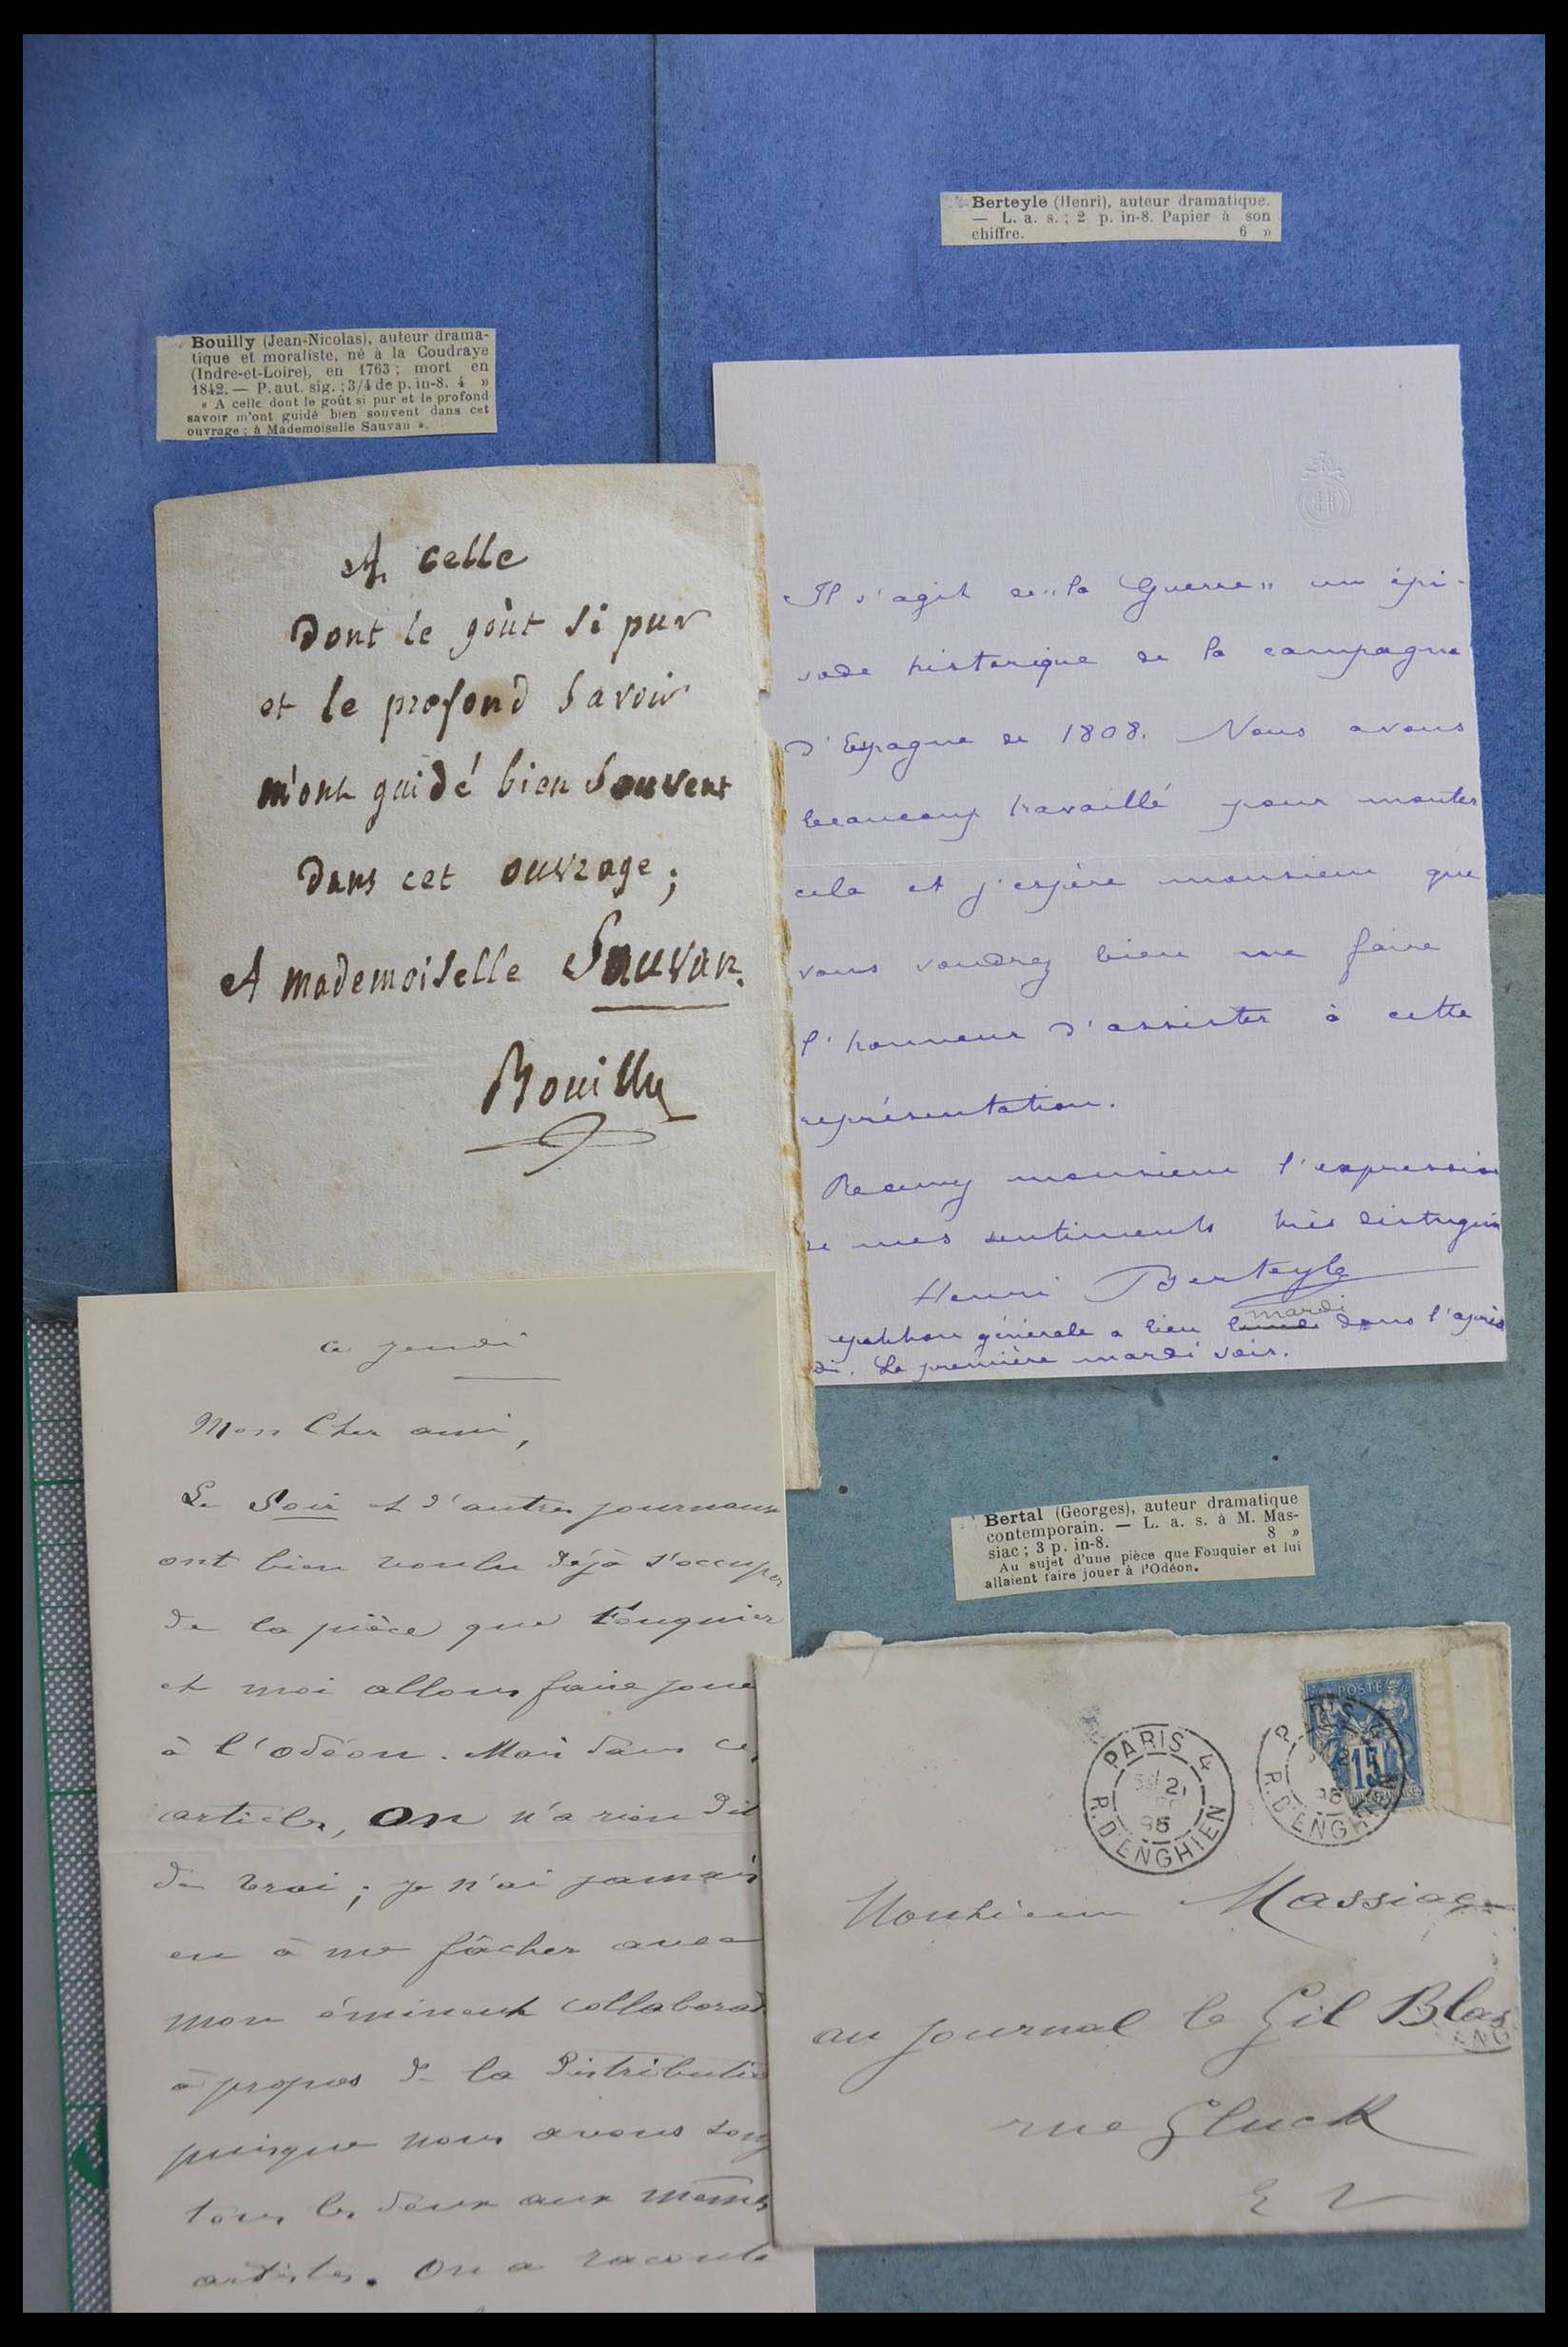 Berteyle (Henri), auteur dramatique.
— L. a. s. ; 2 p. in-8. Papier à son
chiffre. 6 »
Bouilly (Jean-Nicolas), auteur drama-
tique et moraliste, né à la Coudraye
(Indre-et-Loire), en 1763 ; mort en
1842. — P. aut. sig. ; 3/4 de p. in-8. 4 »
« A celle dont le goût si pur et le profond
savoir m'ont guidé bien souvent dans cet
ouvrage ; à Mademoiselle Sauvan ».
A celle
dont le goût si pur
et le profond savoir
m'ont guidé bien souvent
dans cet ouvrage ;
A mademoiselle Sauvan.
Bouilly
Il s'agit de "la Guerre" un épi-
sode historique de la campagne
d'Espagne de 1808. Nous avons
beaucoup travaillé pour monter
cela et j'espère monsieur que
vous voudrez bien me faire
l'honneur d'assister à cette
représentation.
Recevez monsieur l'expression
de mes sentiments très distingués
Henri Berteyle
mardi
epétition générale a lieu lundi dans l'après
di. La première mardi soir.
ce jeudi
Mon Cher ami,
Le Soir et d'autres journaux
ont bien voulu déjà s'occuper
de la pièce que Fouquier
et moi allons faire joue
à l'Odéon. Mais dans ces
articles, on n'a rien dit
de vrai ; je n'ai jamais
eu à me fâcher avec
mon éminent collaborat
à propos de la distributio
puisque nous avons song
tous les deux aux mêmes
artistes. On a raconté
Bertal (Georges), auteur dramatique
contemporain. — L. a. s. à M. Mas-
siac ; 3 p. in-8. 8 »
Au sujet d'une pièce que Fouquier et lui
allaient faire jouer à l'Odéon.
POSTE
15
PARIS 4
R. D'ENGHIEN
R. D'ENGHIEN
Monsieur Massiac
au journal le Gil Blas
ENG
rue Gluck
E V